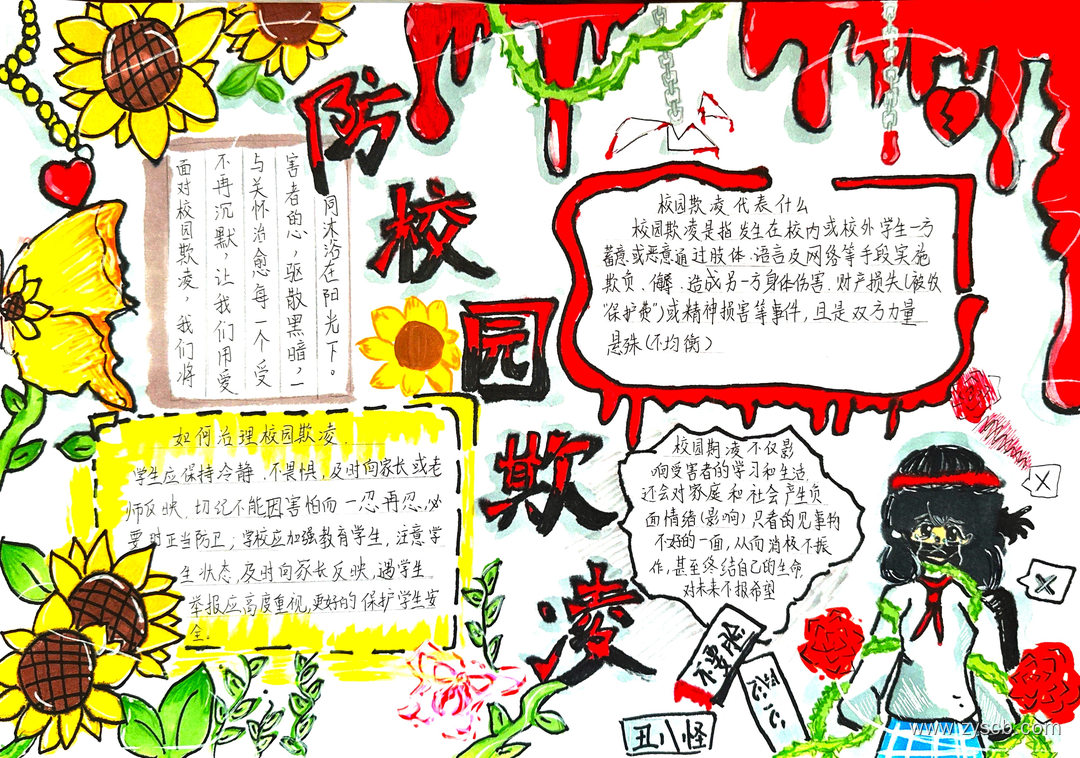 防校园欺凌
面对校园欺凌，我们将
不再沉默，让我们用爱
与关怀治愈每一个受
害者的心，驱散黑暗，一
同沐浴在阳光下。
校园欺凌代表什么
校园欺凌是指发生在校内或校外学生一方
蓄意或恶意通过肢体、语言及网络等手段实施
欺负、造成另一方身体伤害、财产损失（被收
“保护费”）或精神损害等事件，且是双方力量
悬殊（不均衡）
如何治理校园欺凌
学生应保持冷静、不畏惧，及时向家长或老
师反映，切记不能因害怕而一忍再忍，必
要时正当防卫，学校应加强教育学生，注意学
生状态，及时向家长反映，遇学生
举报应高度重视，更好的保护学生安
全。
校园期凌不仅影
响受害者的学习和生活，
还会对家庭和社会产生负
面情绪（影响）只看的见事物
不好的一面，从而消极不振
作，甚至终结自己的生命，
对未来不报希望
不要脸
丑八怪
www.zyscb.com